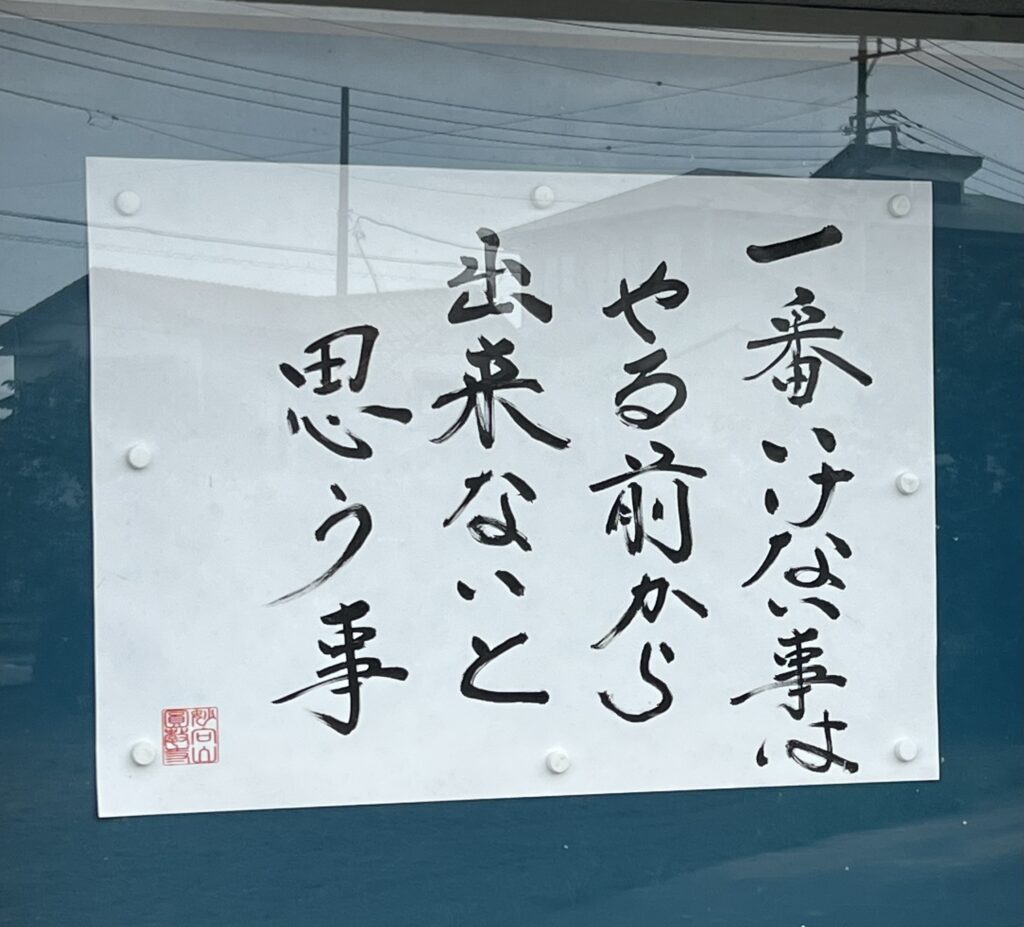 一番いけない事は
やる前から
出来ないと
思う事